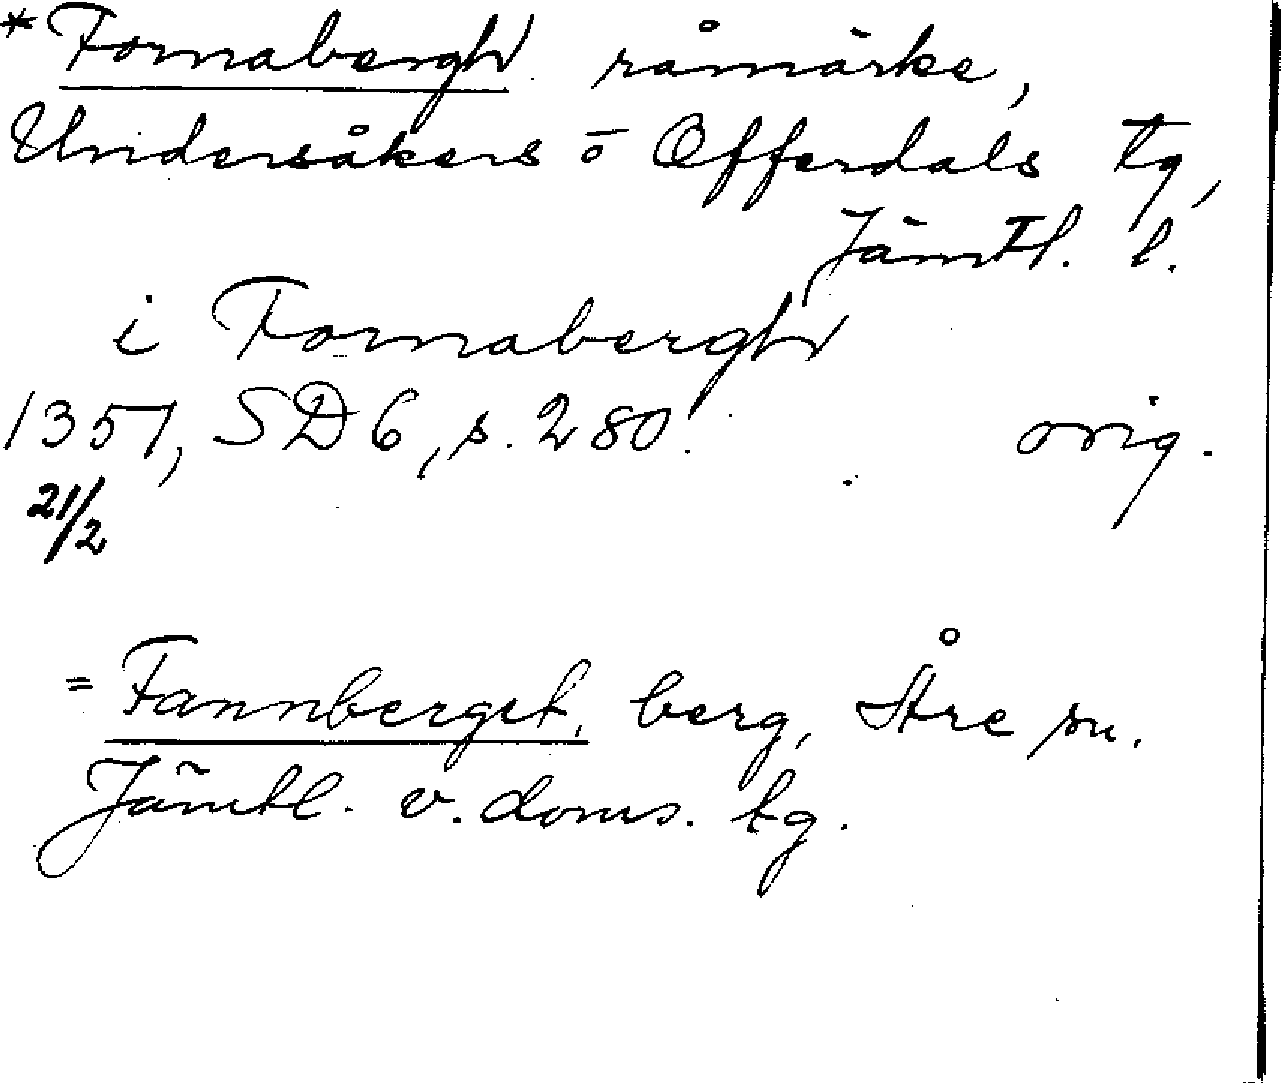 *Fornabergh råmärke,
Undersåkers o Offerdals tg,
Jämtl. l.
i Fornabergh
1351, SD 6, s. 280. orig.
21/2
= Fannberget, berg, Åre sn.
Jämtl. v. doms. tg.